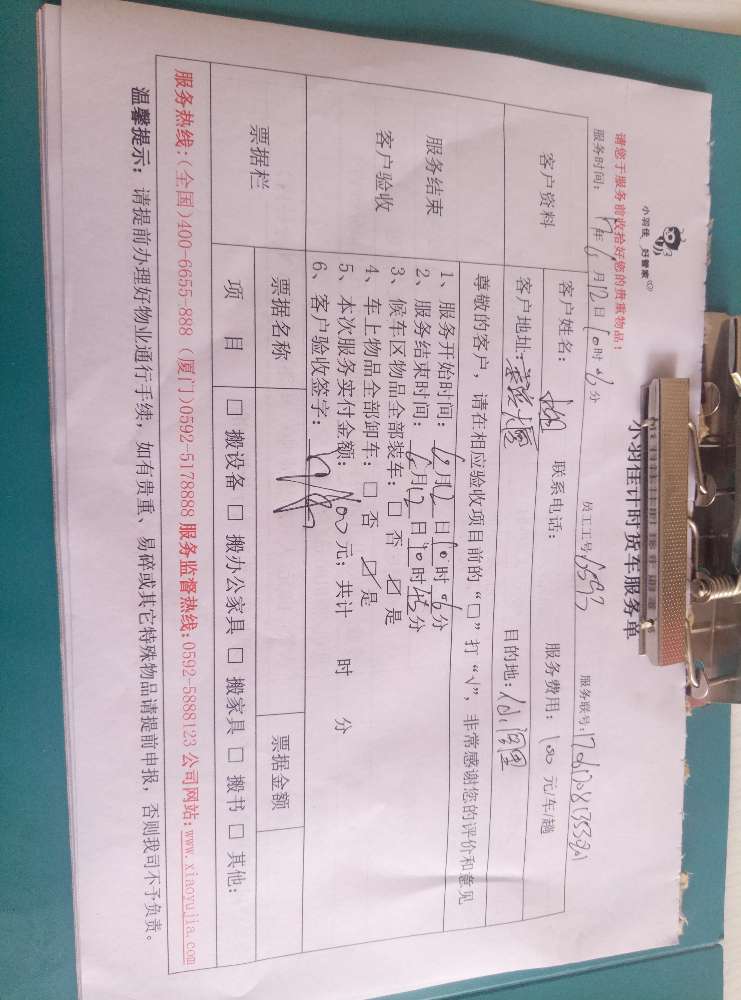 小羽佳 好管家
小羽佳计时货车服务单
请您于服务前收拾好您的贵重物品！
员工工号
服务联号：
服务时间： 年 月12日10时 分
客户资料
客户姓名： 联系电话： 服务费用：100元/车/趟
客户地址： 目的地：
服务结束
客户验收
尊敬的客户，请在相应验收项目前的“□”打“√”，非常感谢您的评价和意见
1、服务开始时间：6月12日10时 分
2、服务结束时间：6月12日10时45分
3、候车区物品全部装车：□ 否 ☑ 是
4、车上物品全部卸车：□ 否 ☑ 是
5、本次服务实付金额：100元；共计 时 分
6、客户验收签字：
票据栏
票据名称
票据金额
项 目
□ 搬设备 □ 搬办公家具 □ 搬家具 □ 搬书 □ 其他:
服务热线:(全国)400-6655-888 (厦门)0592-5178888 服务监督热线:0592-5888123 公司网站:www.xiaoyujia.com
温馨提示：请提前办理好物业通行手续，如有贵重、易碎或其它特殊物品请提前申报，否则我司不予负责。